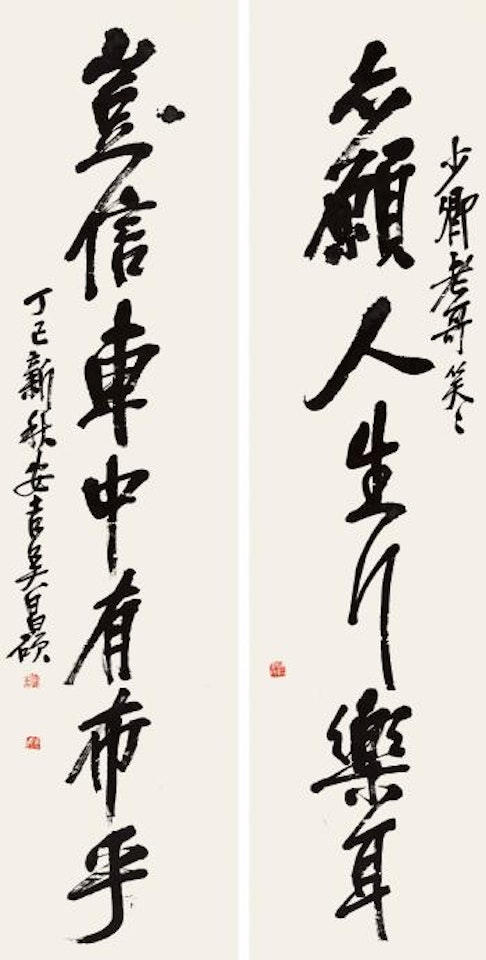 少卿老哥笑〻
志願人生行樂耳
豈信車中有布乎
丁巳新秋安吉吳昌碩